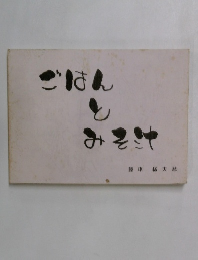 ごはん
と
みそ汁